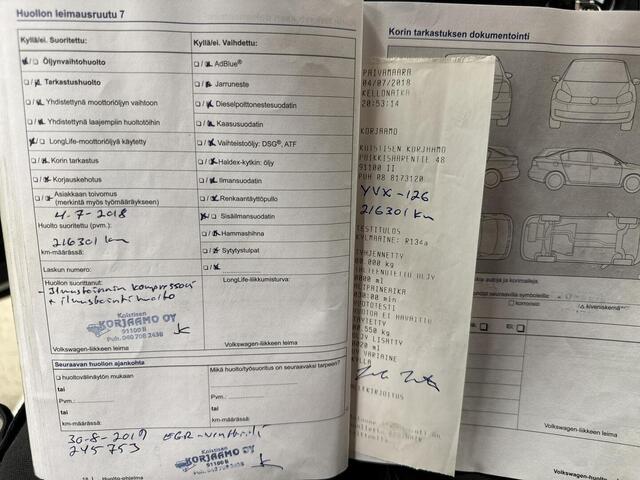 Huollon leimausruutu 7
Kyllä/ei. Suoritettu:
Öljynvaihtohuolto
Tarkastushuolto
Yhdistettynä moottoriöljyn vaihtoon
Yhdistettynä laajempiin huoltotöihin
LongLife-moottoriöljyä käytetty
Korin tarkastus
Korjauskehotus
Asiakkaan toivomus
(merkintä myös työmääräykseen)
4-7-2018
Huolto suoritettu (pvm.):
216301 km
km-määrässä:
Laskun numero:
Huollon suorittanut:
- Ilmastoinnin kompressori
+ ilmastointihuolto
Koistisen
KORJAAMO OY
91100 II
Puh. 040 708 2438
Volkswagen-liikkeen leima
Kyllä/ei. Vaihdettu:
AdBlue®
Jarruneste
Dieselpolttonestesuodatin
Kaasusuodatin
Vaihteistoöljy: DSG®, ATF
Haldex-kytkin: öljy
Ilmansuodatin
Renkaantäyttöpullo
Sisäilmansuodatin
Hammashihna
Sytytystulpat
LongLife-liikkumisturva:
Volkswagen-liikkeen leima
Seuraavan huollon ajankohta
huoltovälinäytön mukaan
tai
Pvm.:
tai
km-määrässä:
Mikä huolto/työsuoritus on seuraavaksi tarpeen?
tai
Pvm.:
km-määrässä:
30-8-2019 EGR-venttiili
245753
Koistisen
KORJAAMO OY
91100 II
Huolto-ohjelma
PÄIVÄMÄÄRÄ
04/07/2018
KELLONAIKA
20:53:14
KORJAAMO
KOISTISEN KORJAAMO
91100 II
PUH 08 8173120
YVX-126
216301 km
TESTITULOS
R134a
ml
min
ml
Korin tarkastuksen dokumentointi
Volkswagen-liikkeen leima